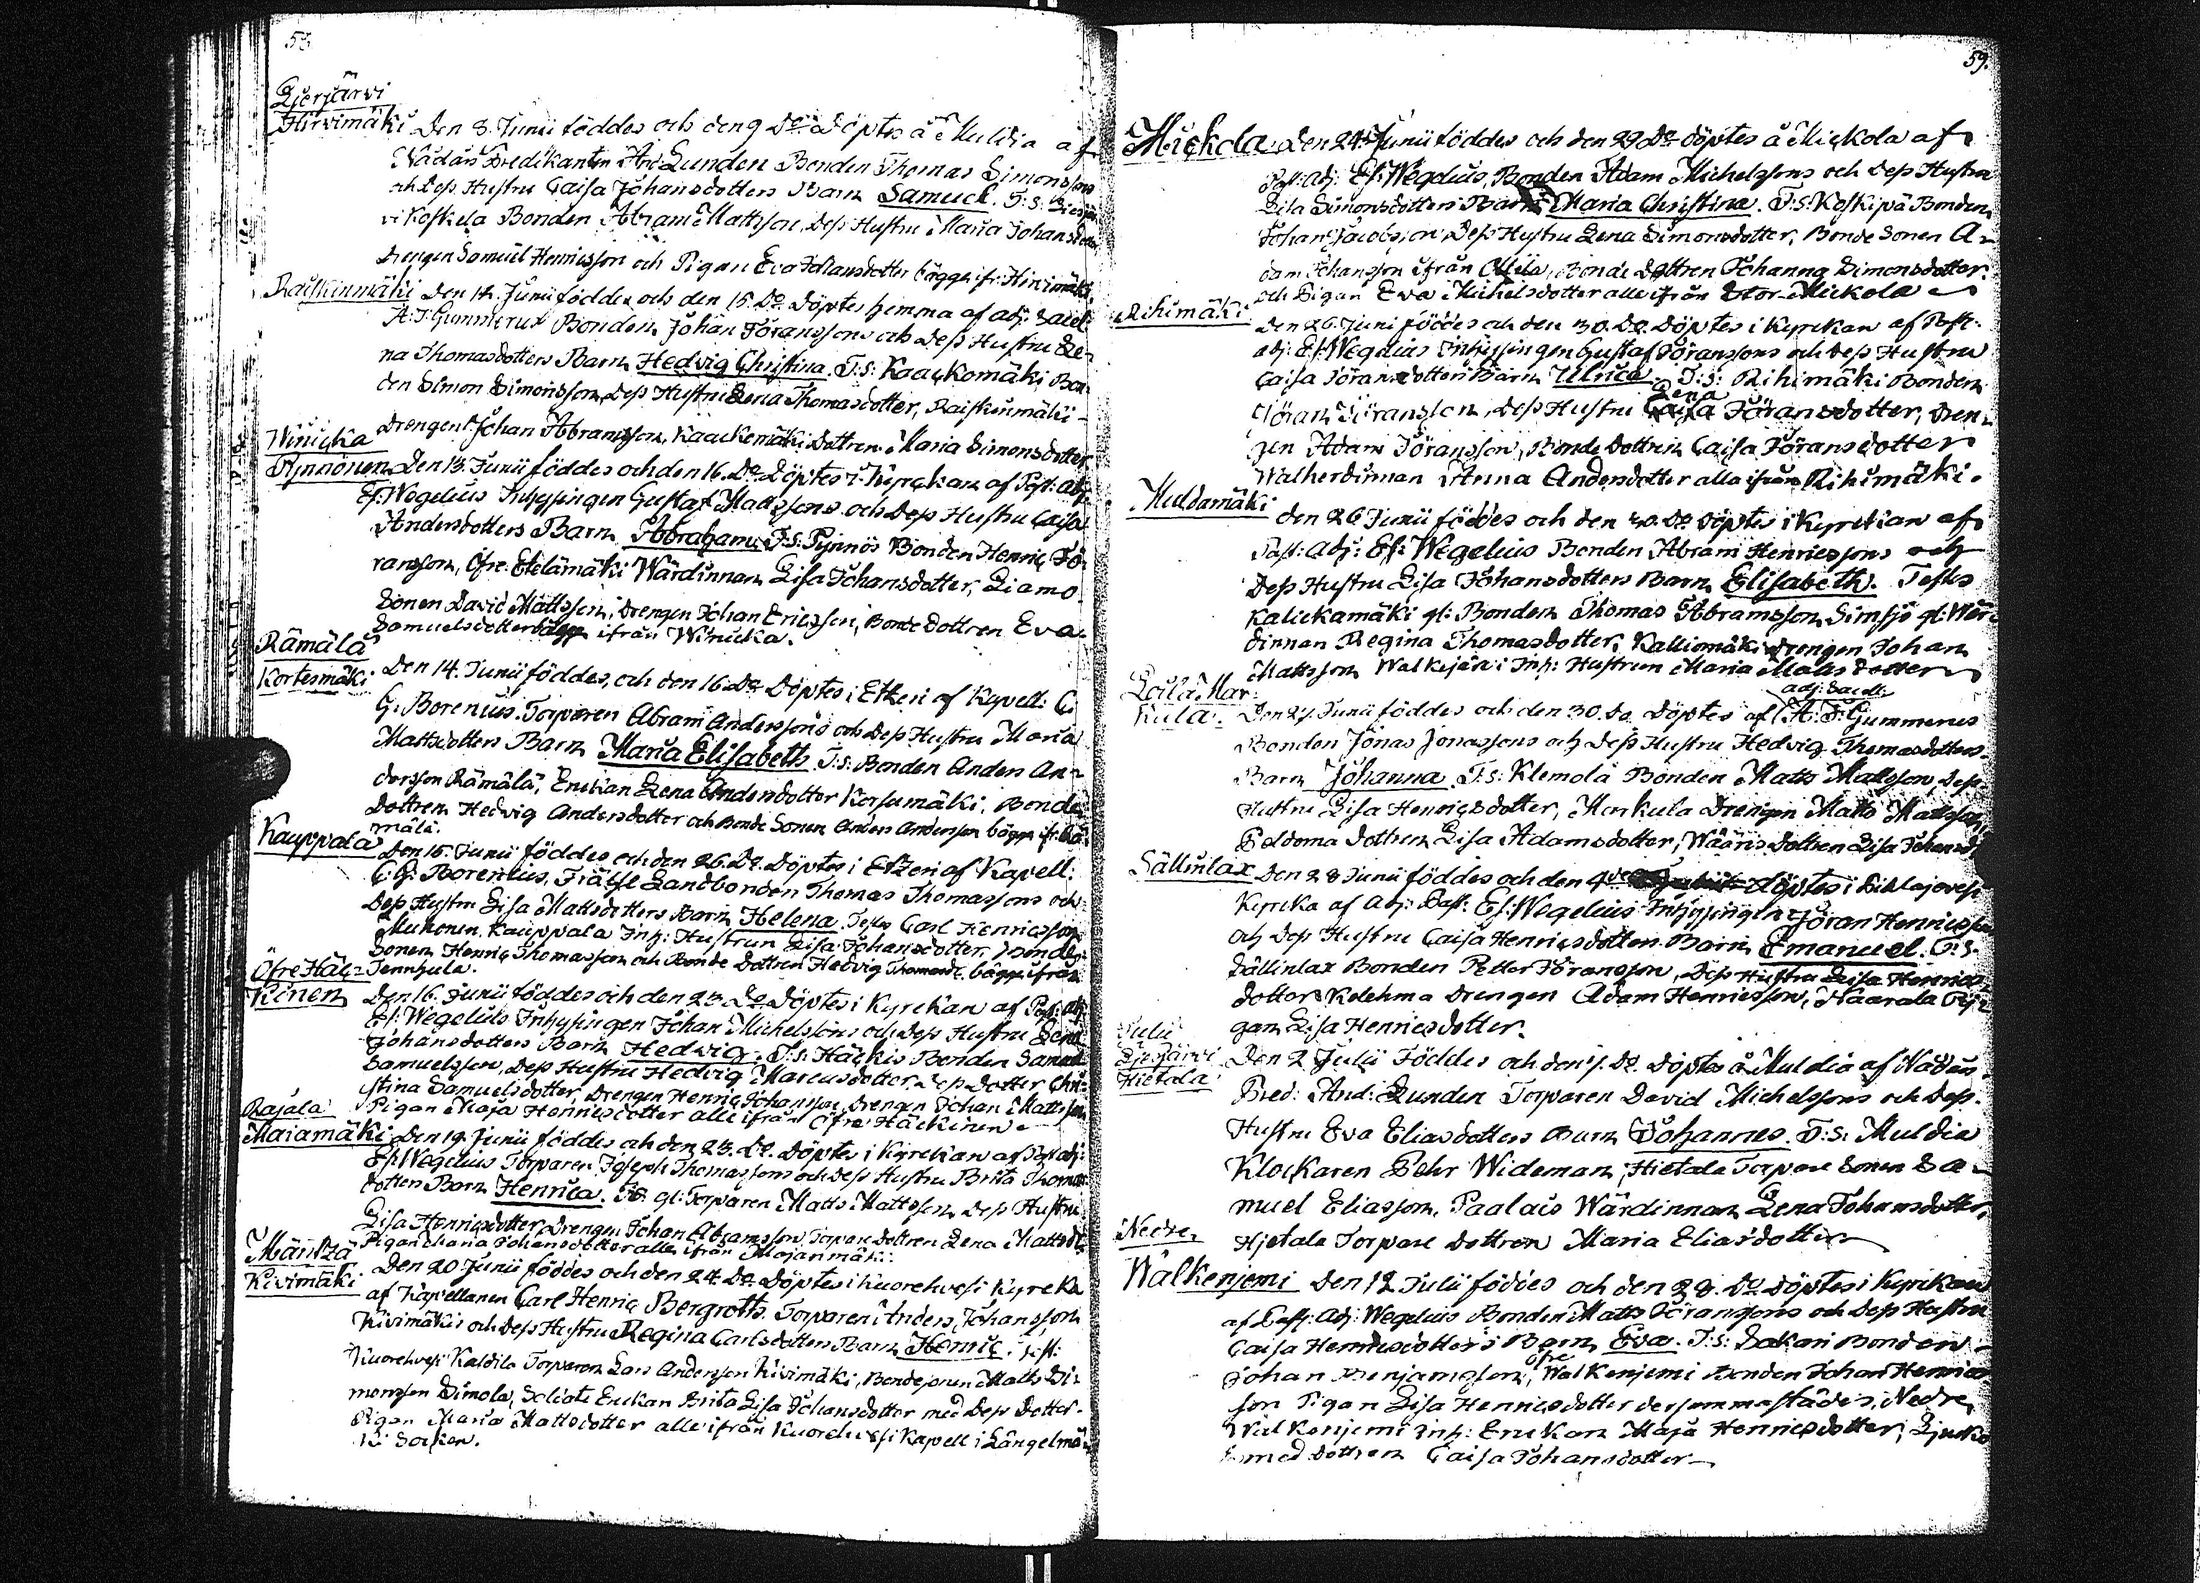 58
Hirvimäki Den 8. Junii föddes och den 9 Do Döptes å Muldia af
Nådårs Predikanten And. Lunden Bonden Thomas Simonssons
och Dess Hustru Caisa Johansdotters Barn Samuel. T: s:
vi Koskela Bonden Abram Mattsson, Dess Hustru Maria Johansdotter
Drengen Samuel Henricsson och Pigan Eva Johansdotter bägge ifr: Hirvimäki.
Raiskinmäki Den 12. Junii föddes och den 15. Do Döptes hemma af adj: Sacell:
A: F. Gummerus Bonden Johan Göranssons och Dess Hustru Le-
na Thomasdotters Barn Hedvig Christina. T: s: Kaackomäki Bon-
den Simon Simonsson, Dess Hustru Lena Thomasdotter, Raiskinmäki
Drengen Johan Abramsson, Kaackomäki Dottren Maria Simonsdotter
Winicka
Pynnönen Den 13. Junii föddes och den 16. Do Döptes i Kyrckan af Past: adj:
Es: Wegelius Inhysingen Gustaf Mattssons och Dess Hustru Caisa
Andersdotters Barn Abraham. T: s: Pynnös Bonden Henric Gö-
ransson, Öfre Etelämäki Wärdinnan Lisa Johansdotter, Liamo
Sonen David Mattsson, Drengen Johan Ericsson, Bonde Dottren Eva
Samuelsdotter bägge ifrån Winicka.
Rämälä
Kortesmäki Den 14. Junii föddes, och den 16. Do Döptes i Etzeri af Kapell: C:
G: Borenius. Torparen Abram Anderssons och Dess Hustru Maria
Mattsdotters Barn Maria Elisabeth. T: s: Bonden Anders An-
dersson Rämälä, Enckan Lena Andersdotter Korsumäki, Bonde
Dottren Hedvig Andersdotter och Bonde Sonen Anders Andersson bägge ifr: Rä-
mälä.
Kauppala Den 15. Junii föddes och den 26. Do Döptes i Etzeri af Kapell:
C: G: Borenius, Frälse Landbonden Thomas Thomassons och
Dess Hustru Lisa Mattsdotters Barn Helena. Testes Carl Henricsson
Mukonen, Kauppala Inh: Hustrun Lisa Johansdotter, Bonde
Sonen Henric Thomasson och Bonde Dottren Hedvig Thomasd: bägge ifrån
Öfre Häc-
kinen Den 16. Junii föddes och den 23. Do Döptes i Kyrckan af Past: adj:
Es: Wegelius Inhysingen Johan Michelssons och Dess Hustru Lena
Johansdotters Barn Hedvig. T: s: Häckis Bonden Samuel
Samuelsson, Dess Hustru Hedvig Marcusdotter, Dess Dotter Chri-
stina Samuelsdotter, Drengen Henric Johansson, Drengen Johan Mattsson,
Pigan Maja Henricsdotter alle ifrån Öfre Häckinen
Rajala
Maiamäki Den 19. Junii föddes och den 23. Do Döptes i Kyrckan af Past adj:
Es: Wegelius Torparen Joseph Thomassons och Dess Hustru Brita Thomas-
dotters Barn Henrica. T: s: gl: Torparen Matts Mattsson, Dess Hustru
Lisa Henricsdotter, Drengen Johan Abramsson, Torpare Dottren Lena Mattsd:
Pigan Maria Johansdotter alle ifrån Majanmäki.
Mäntzä
Kivimäki Den 20. Junii föddes och den 24. Do Döptes i Kuorehvesi Kyrcka
af Kapellanen Carl Henric Bergroth. Torparen Anders Johansson
Kivimäkis och Dess Hustru Regina Carlsdotters Barn Henric. Test:
Kuorehvesi Kaldila Torparen Lars Andersson Kivimäki, Bondesonen Matts Si-
monsson Simola, Soldate Enckan Brita Lisa Johansdotter med Dess Dotter.
Pigan Maria Mattsdotter alle ifrån Kuorehvesi Kapell i Längelmä-
ki Socken.
59.
Mickola Den 24. Junii föddes och den 29 Do döptes å Mickola af
Past: Adj: Es: Wegelius, Bonden Adam Michelssons och Dess Hustru
Lisa Simonsdotters Barn Maria Christina. T: S: Koskipä Bonden
Johan Jacobsson, Dess Hustru Lena Simonsdotter, Bonde Sonen A-
dam Johansson ifrån Ollila, Bonde Dottren Johanna Simonsdotter
och Pigan Eva Michelsdotter alle ifrån Stor-Mickola
Rihimäki Den 26. Juni föddes och den 30. Do. Döptes i Kyrckan af Past:
adj: Es: Wegelius Inhysingen Gustaf Göranssons och Dess Hustru
Caisa Göransdotters Barn Ulrica. T: s: Rihimäki Bonden
Göran Göransson, Dess Hustru Lena Göransdotter, Dren-
gen Adam Göransson, Bonde Dottren Caisa Göransdotter
Andersdotter alle ifrån Rihimäki.
Muldamäki Den 26 Junii föddes och den 30. Do Döptes i Kyrckan af
Past: Adj: Es: Wegelius Bonden Abram Henricssons och
Dess Hustru Lisa Johansdotters Barn Elisabeth. Testes
Kalickamäki gl: Bonden Thomas Abramsson, Simsjö gl: Wär-
dinnan Regina Thomasdotter, Kalliomäki Drengen Johan
Mattsson Walkejärvi Inh: Hustrun Maria Mattsdotter
Loila Mar-
kula. Den 27. Junii föddes och den 30. Do. Döptes af adj: Sacell: A: F: Gummerus
Bonden Jonas Jonassons och Dess Hustru Hedvig Thomasdotters
Barn Johanna. T: s: Klemola Bonden Matts Mattsson, Dess
Hustru Lisa Henricsdotter, Markula Drengen Matts Mattsson,
Peldoma Dottren Lisa Adamsdotter, Wääris Dottren Lisa Johansd:
Sällinlax Den 28 Junii föddes och den 4de Döptes i
Kyrcka af Adj: Past: Es: Wegelius Inhysingen Göran Henricssons
och Dess Hustru Caisa Henricsdotters Barn Emanuel. T: s:
Sällinlax Bonden Petter Göransson, Dess Hustru Lisa Henrics-
dotter Kolehma Drengen Adam Henricsson, Haarala Pi-
gan Lisa Henricsdotter.
Julii
Hietala Den 2 Julii Föddes och den 7. Do. Döptes å Muldia af Nådårs
Pred: And: Lunden Torparen David Michelssons och Dess
Hustru Eva Eliasdotters Barn Johannes. T: s: Muldia
Klockaren Pehr Wideman, Hietala Torpare Sonen Sa-
muel Eliasson, Paalais Wärdinnan Lena Johansdotter,
Hietala Torpare Dottren Maria Eliasdotter
Nedre
Walkenjemi Den 12 Julii föddes och den 28. Do. Döptes i Kyrckan
af Past: Adj: Wegelius Bonden Matts Göranssons och Dess Hustru
Caisa Henricsdotters Barn Eva. T: s: Sakari Bonden
Johan Benjamsson, Öfre Walkenjemi Bonden Johan Henrics-
son Pigan Lisa Henricsdotter dersammastädes, Nedre
Walkenjemi Inh: Enckan Maja Henricsdotter,
med Dottren Caisa Johansdotter